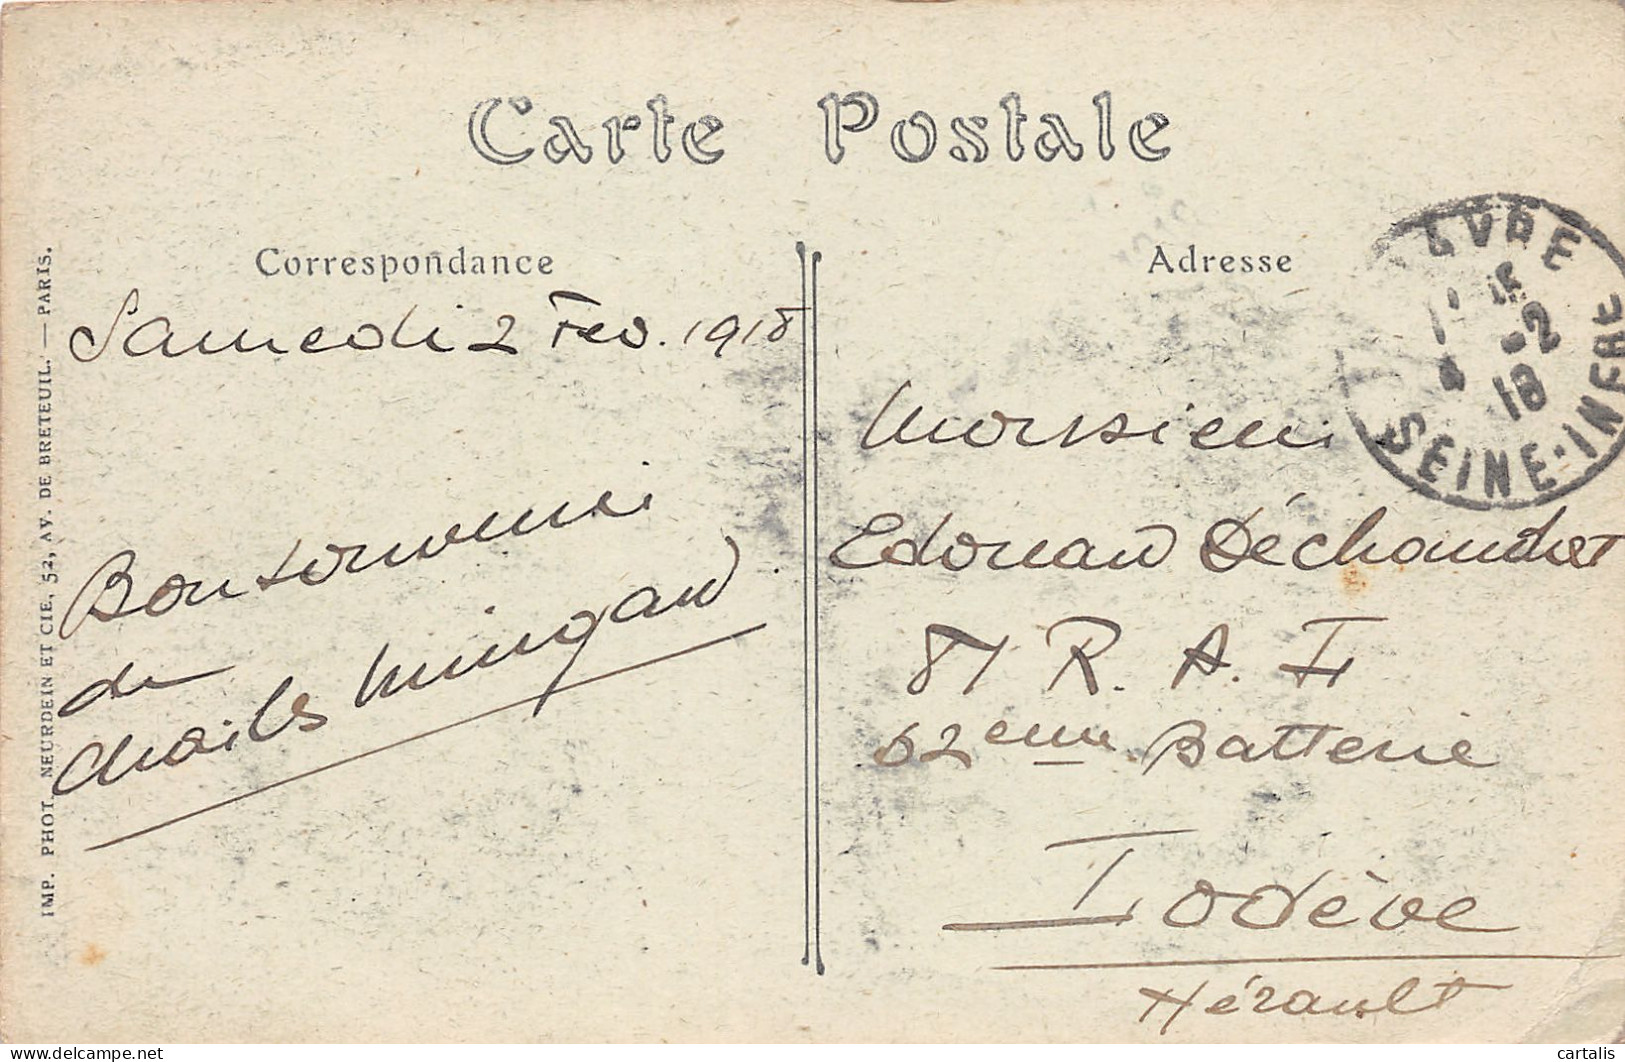 Carte Postale
Correspondance
Samedi 2 Fev. 1918
Bon souvenir
de
Charles Mingaud
Adresse
Monsieur
Edouard
81 R. A. L
62eme Batterie
Lodève
Hérault
AVRE
15
-2
18
SEINE-INFRE
IMP. PHOT. NEURDEIN ET CIE, 52, AV. DE BRETEUIL. — PARIS.
delcampe.net
cartalis